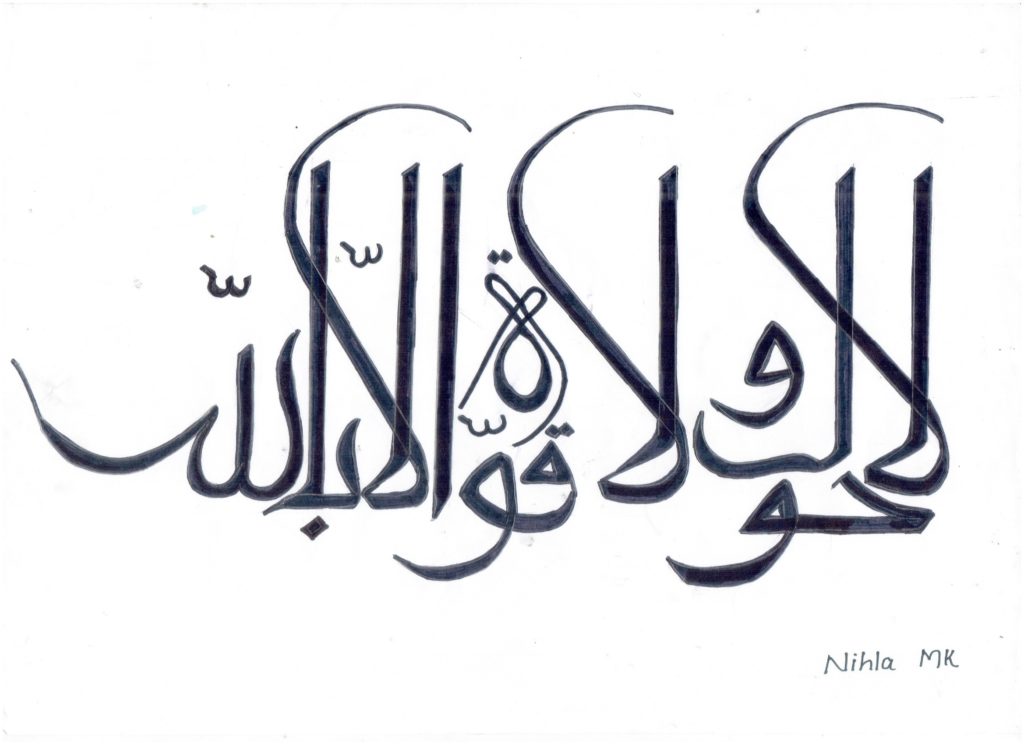 لا حول ولا قوّة الّا باللّه
Nihla MK